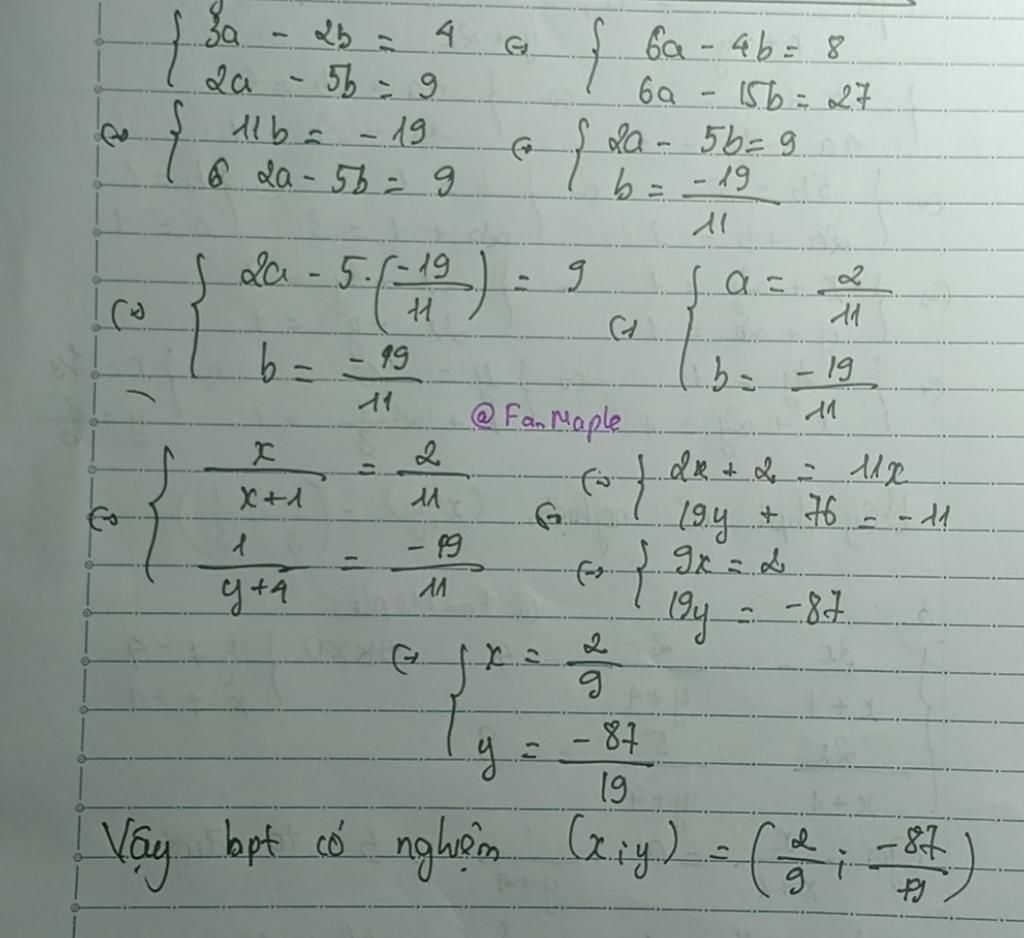 { 3a - 2b = 4 ⇔ { 6a - 4b = 8
2a - 5b = 9 6a - 15b = 27
⇔ { 11b = -19 ⇔ { 2a - 5b = 9
2a - 5b = 9 b = -19/11
⇔ { 2a - 5·(-19/11) = 9 ⇔ { a = 2/11
b = -19/11 b = -19/11
@FanMaple
⇔ { x/(x+1) = 2/11 ⇔ { 2x + 2 = 11x
1/(y+4) = -19/11 19y + 76 = -11
⇔ { 9x = 2
19y = -87
⇔ { x = 2/9
y = -87/19
Vậy bpt có nghiệm (x;y) = (2/9; -87/19)